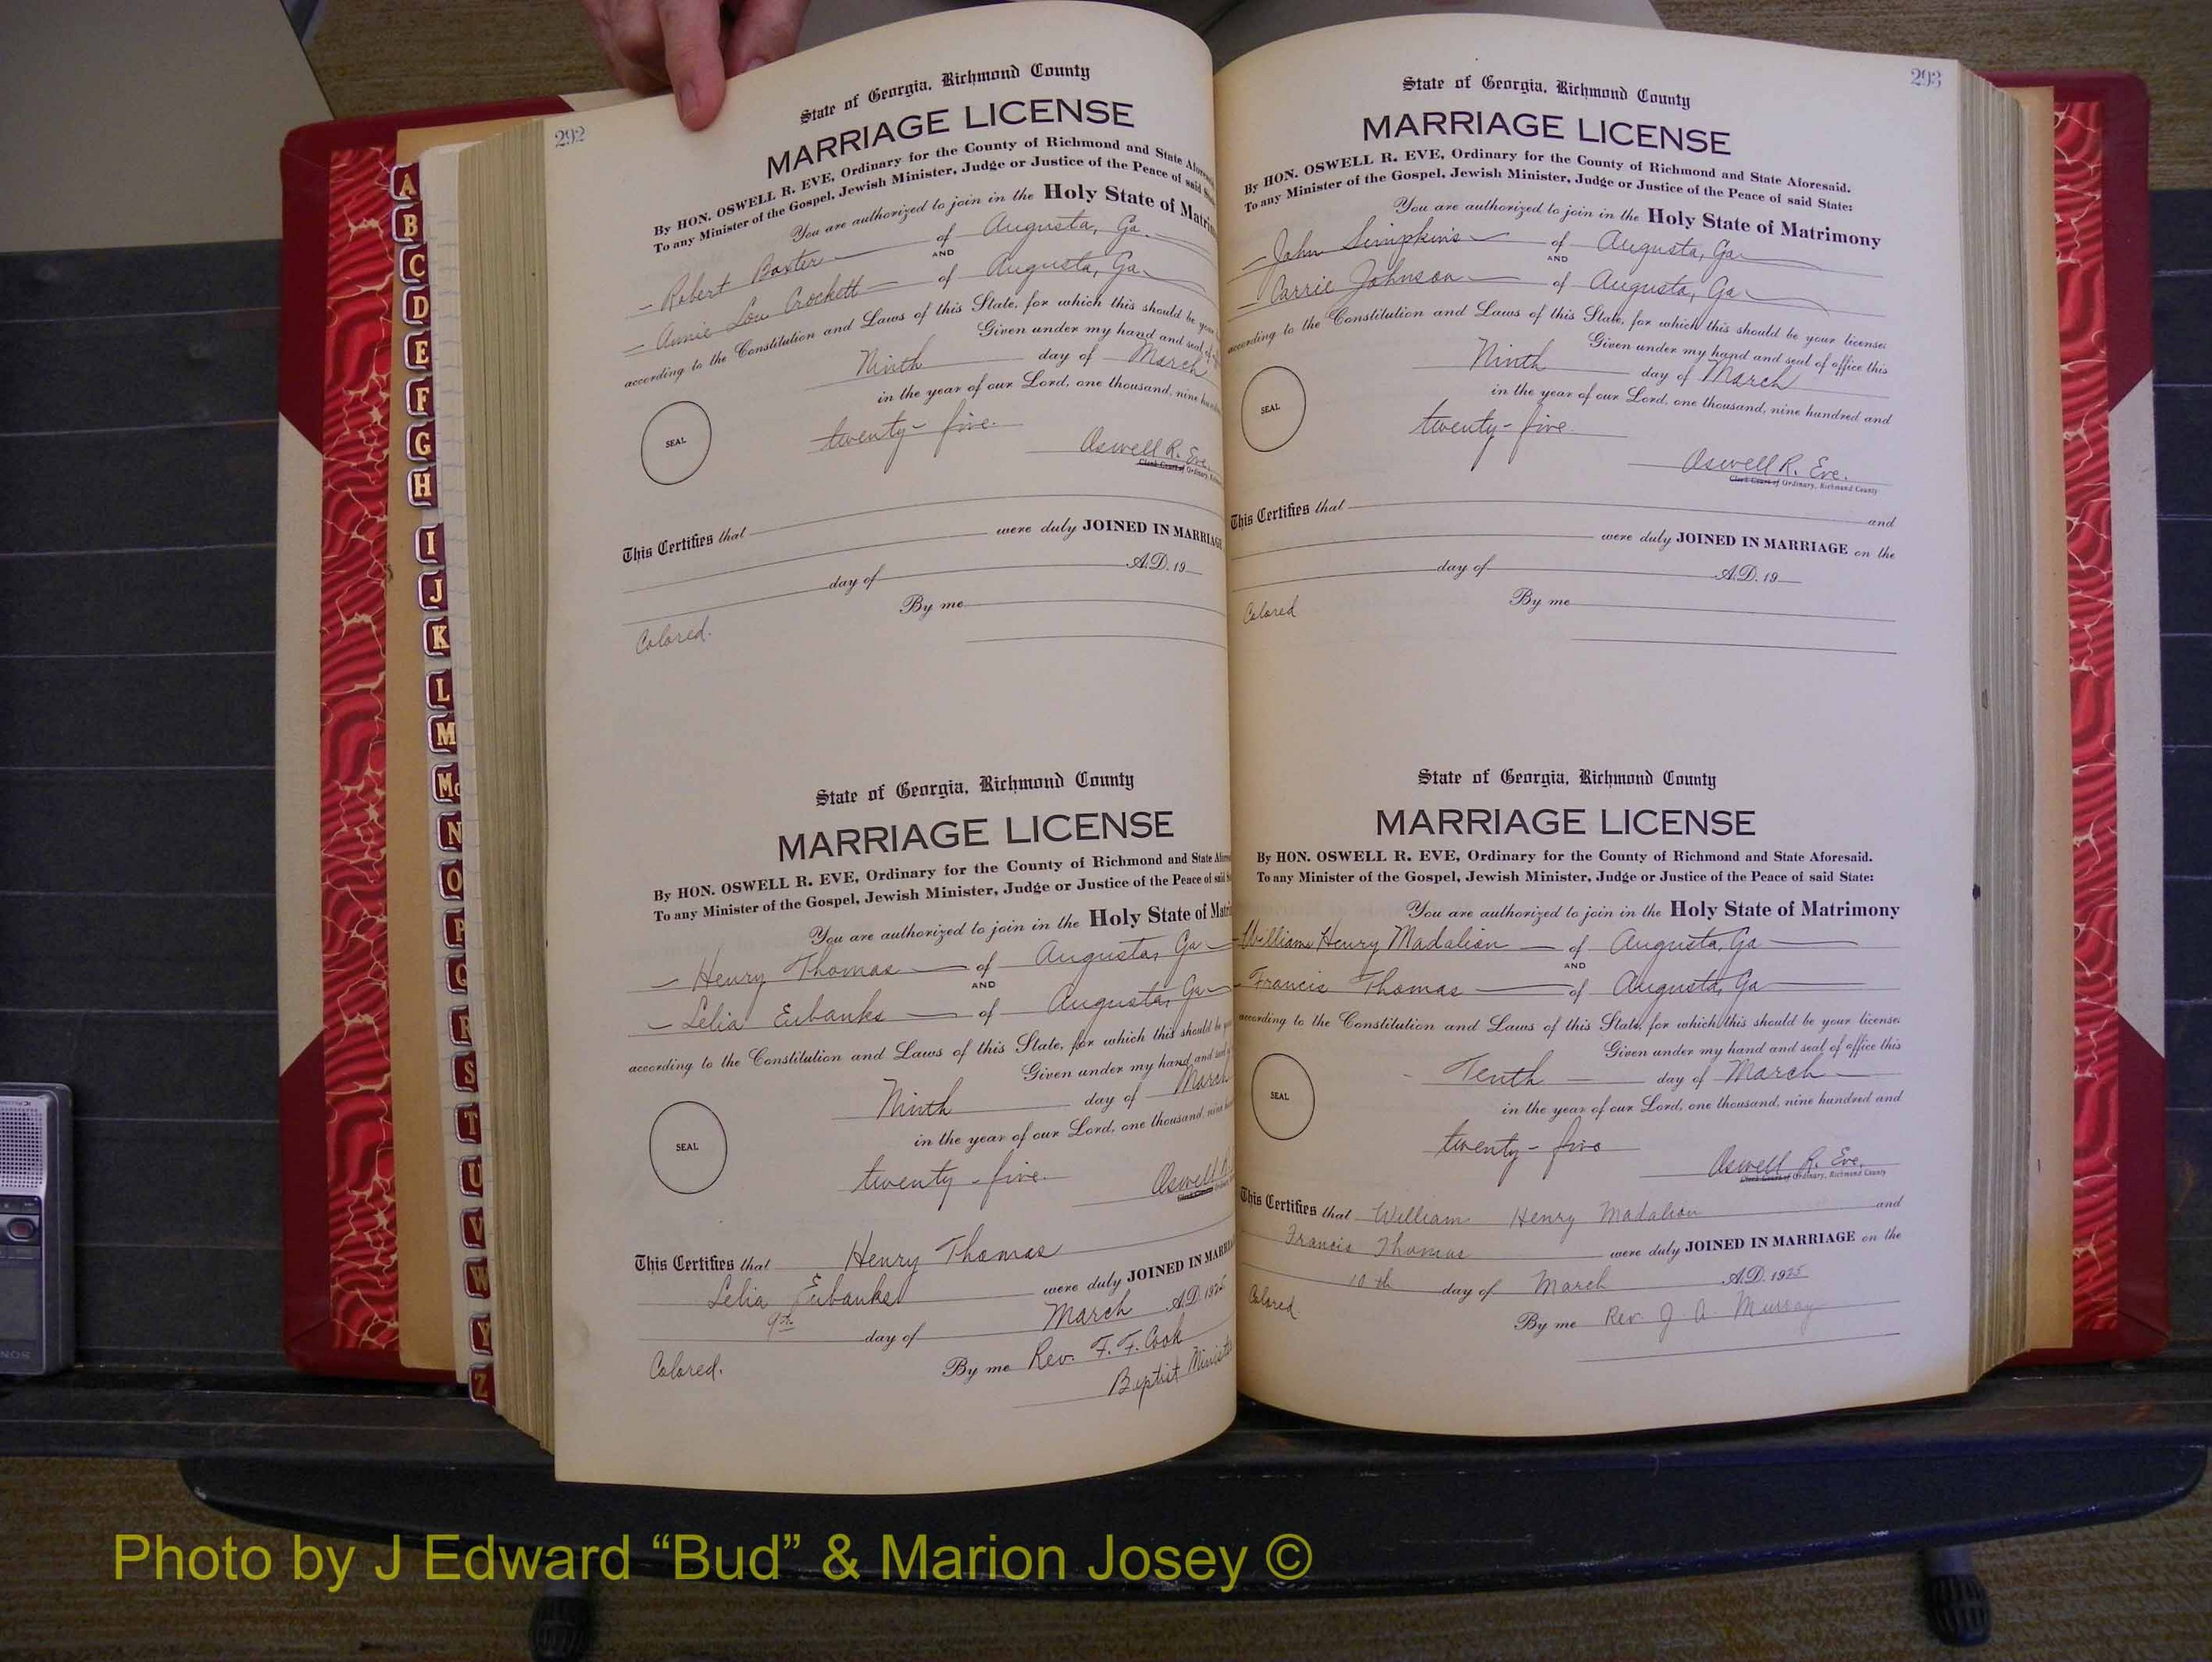 292
State of Georgia, Richmond County
MARRIAGE LICENSE
By HON. OSWELL R. EVE, Ordinary for the County of Richmond and State Afores
To any Minister of the Gospel, Jewish Minister, Judge or Justice of the Peace of said Sta
You are authorized to join in the Holy State of Matrim
Robert Baxter of Augusta, Ga.
AND
Annie Lou Crockett of Augusta, Ga
according to the Constitution and Laws of this State, for which this should be your
Given under my hand and seal of
Ninth day of March
in the year of our Lord, one thousand, nine hundred
SEAL
twenty-five.
Oswell R. Eve.
Clerk Court of Ordinary,
This Certifies that
were duly JOINED IN MARRIAGE
day of A.D. 19
By me
Colored.
State of Georgia, Richmond County
MARRIAGE LICENSE
By HON. OSWELL R. EVE, Ordinary for the County of Richmond and State Afores
To any Minister of the Gospel, Jewish Minister, Judge or Justice of the Peace of said
You are authorized to join in the Holy State of Matri
Henry Thomas of Augusta, Ga
AND
Lelia Eubanks of Augusta, Ga
according to the Constitution and Laws of this State, for which this should be
Given under my hand and seal
Ninth day of March
in the year of our Lord, one thousand, nine
SEAL
twenty-five.
Oswell R.
This Certifies that Henry Thomas
Lelia Eubanks were duly JOINED IN MARRIA
9th day of March A.D. 1925
Colored.
By me Rev. F. F. Cook
Baptist Minister
293
State of Georgia, Richmond County
MARRIAGE LICENSE
By HON. OSWELL R. EVE, Ordinary for the County of Richmond and State Aforesaid.
To any Minister of the Gospel, Jewish Minister, Judge or Justice of the Peace of said State:
You are authorized to join in the Holy State of Matrimony
John Simpkins of Augusta, Ga
AND
Carrie Johnson of Augusta, Ga
according to the Constitution and Laws of this State, for which this should be your license.
Given under my hand and seal of office this
Ninth day of March
in the year of our Lord, one thousand, nine hundred and
SEAL
twenty-five
Oswell R. Eve.
Clerk Court of Ordinary, Richmond County
This Certifies that and
were duly JOINED IN MARRIAGE on the
day of A.D. 19
Colored
By me
State of Georgia, Richmond County
MARRIAGE LICENSE
By HON. OSWELL R. EVE, Ordinary for the County of Richmond and State Aforesaid.
To any Minister of the Gospel, Jewish Minister, Judge or Justice of the Peace of said State:
You are authorized to join in the Holy State of Matrimony
William Henry Madalion of Augusta, Ga
AND
Francis Thomas of Augusta, Ga
according to the Constitution and Laws of this State, for which this should be your license.
Given under my hand and seal of office this
Tenth day of March
in the year of our Lord, one thousand, nine hundred and
SEAL
twenty-five
Oswell R. Eve.
Clerk Court of Ordinary, Richmond County
This Certifies that William Henry Madalion and
Francis Thomas were duly JOINED IN MARRIAGE on the
10th day of March A.D. 1925
Colored
By me Rev. J A Murray
A
B
C
D
E
F
G
H
I
J
K
L
M
Mc
N
O
P
Q
R
S
T
U
V
W
Y
Z
Photo by J Edward “Bud” & Marion Josey ©